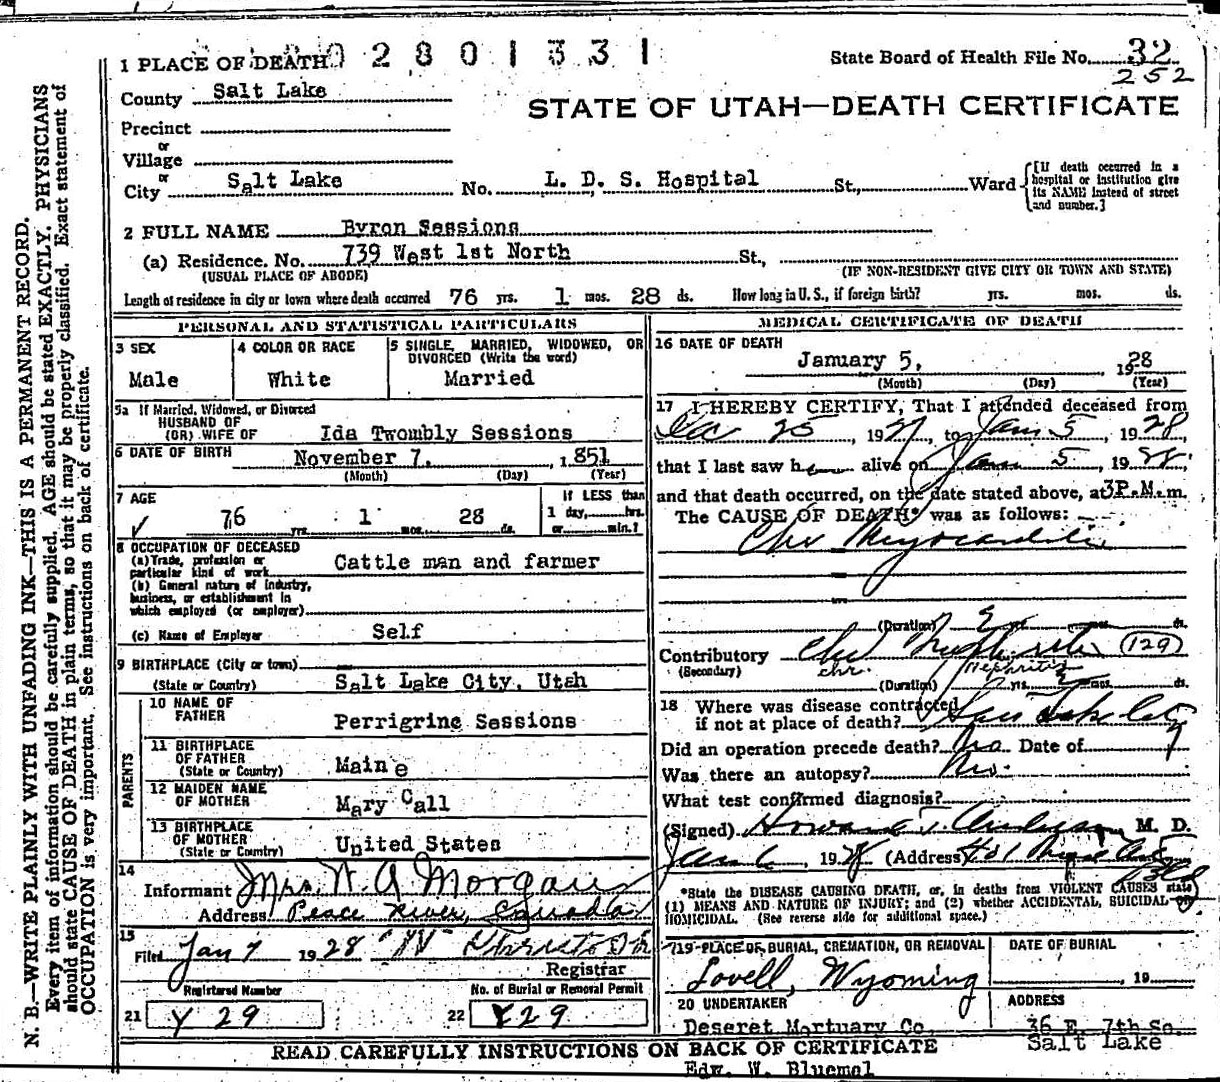 02801331
State Board of Health File No. 32
252
1 PLACE OF DEATH
County Salt Lake
STATE OF UTAH—DEATH CERTIFICATE
Precinct
or
Village
or
City Salt Lake No. L. D. S. Hospital St., Ward
[If death occurred in a
hospital or institution give
its NAME instead of street
and number.]
2 FULL NAME Byron Sessions
(a) Residence. No. 739 West 1st North St.,
(USUAL PLACE OF ABODE) (IF NON-RESIDENT GIVE CITY OR TOWN AND STATE)
Length of residence in city or town where death occurred 76 yrs. 1 mos. 28 ds. How long in U. S., if foreign birth? yrs. mos. ds.
PERSONAL AND STATISTICAL PARTICULARS
3 SEX
Male
4 COLOR OR RACE
White
5 SINGLE, MARRIED, WIDOWED, OR
DIVORCED (Write the word)
Married
5a If Married, Widowed, or Divorced
HUSBAND OF
(OR) WIFE OF Ida Twombly Sessions
6 DATE OF BIRTH November 7, 1851
(Month) (Day) (Year)
7 AGE
76 yrs. 1 mos. 28 ds.
If LESS than
1 day, hrs.
or min.?
8 OCCUPATION OF DECEASED
(a) Trade, profession or
particular kind of work Cattle man and farmer
(b) General nature of industry,
business, or establishment in
which employed (or employer)
(c) Name of Employer Self
9 BIRTHPLACE (City or town)
(State or Country) Salt Lake City, Utah
PARENTS
10 NAME OF
FATHER Perrigrine Sessions
11 BIRTHPLACE
OF FATHER
(State or Country) Maine
12 MAIDEN NAME
OF MOTHER Mary Call
13 BIRTHPLACE
OF MOTHER
(State or Country) United States
14
Informant Mrs. W A Morgan
Address Peace River, Canada
15
Filed Jan 7 1928
Registrar
Registered Number
21 Y 29
No. of Burial or Removal Permit
22 Y29
MEDICAL CERTIFICATE OF DEATH
16 DATE OF DEATH
January 5, 1928
(Month) (Day) (Year)
17 I HEREBY CERTIFY, That I attended deceased from
Dec 25, 1927, to Jan 5, 1928
that I last saw him alive on Jan 5, 1928,
and that death occurred, on the date stated above, at 3P.M. m.
The CAUSE OF DEATH* was as follows:
Chr Myocarditis
(Duration) 2 yrs. ds.
Contributory Chr Nephritis (129)
(Secondary) chr. Nephritis
(Duration) 2 yrs. mos. ds.
18 Where was disease contracted
if not at place of death? Salt Lake City
Did an operation precede death? No Date of
Was there an autopsy? No.
What test confirmed diagnosis?
(Signed) Howard T. Anderson M. D.
Jan 6, 1928 (Address)
*State the DISEASE CAUSING DEATH, or, in deaths from VIOLENT CAUSES state
(1) MEANS AND NATURE OF INJURY; and (2) whether ACCIDENTAL, SUICIDAL or
HOMICIDAL. (See reverse side for additional space.)
19 PLACE OF BURIAL, CREMATION, OR REMOVAL
Lovell, Wyoming
DATE OF BURIAL
19
20 UNDERTAKER
Deseret Mortuary Co.
Edw. W. Bluemel
ADDRESS
36 E. 7th So.
Salt Lake
READ CAREFULLY INSTRUCTIONS ON BACK OF CERTIFICATE
N. B.—WRITE PLAINLY WITH UNFADING INK—THIS IS A PERMANENT RECORD.
Every item of information should be carefully supplied. AGE should be stated EXACTLY. PHYSICIANS
should state CAUSE OF DEATH in plain terms, so that it may be properly classified. Exact statement of
OCCUPATION is very important. See instructions on back of certificate.